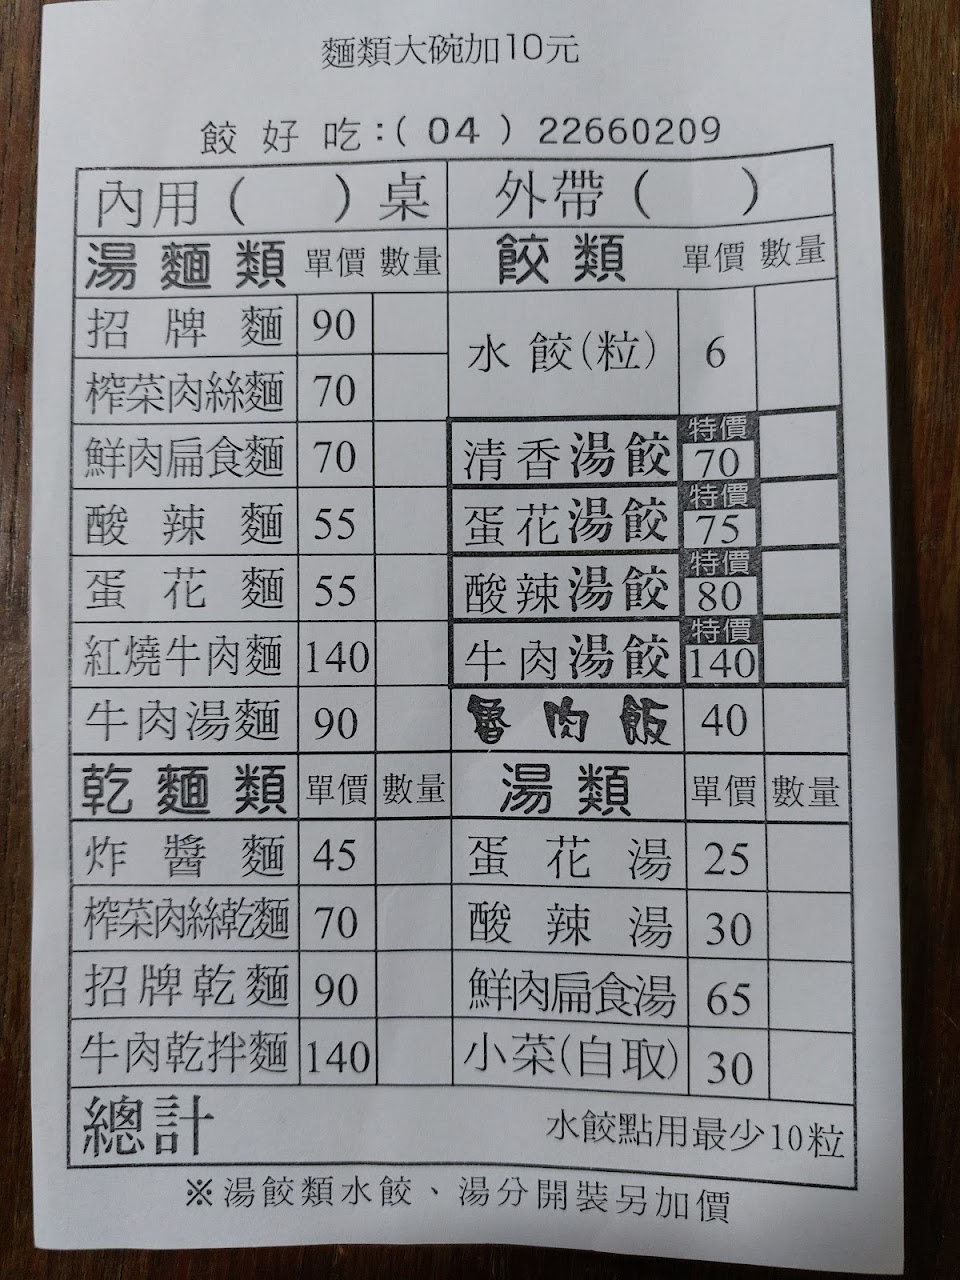 麵類大碗加10元
餃好吃:(04)22660209
內用(　　)桌 外帶(　　)
湯麵類 單價 數量 餃類 單價 數量
招牌麵 90
榨菜肉絲麵 70
水餃(粒) 6
鮮肉扁食麵 70 清香湯餃 特價 70
酸辣麵 55 蛋花湯餃 特價 75
蛋花麵 55 酸辣湯餃 特價 80
紅燒牛肉麵 140 牛肉湯餃 特價 140
牛肉湯麵 90 魯肉飯 40
乾麵類 單價 數量 湯類 單價 數量
炸醬麵 45 蛋花湯 25
榨菜肉絲乾麵 70 酸辣湯 30
招牌乾麵 90 鮮肉扁食湯 65
牛肉乾拌麵 140 小菜(自取) 30
總計 水餃點用最少10粒
※湯餃類水餃、湯分開裝另加價